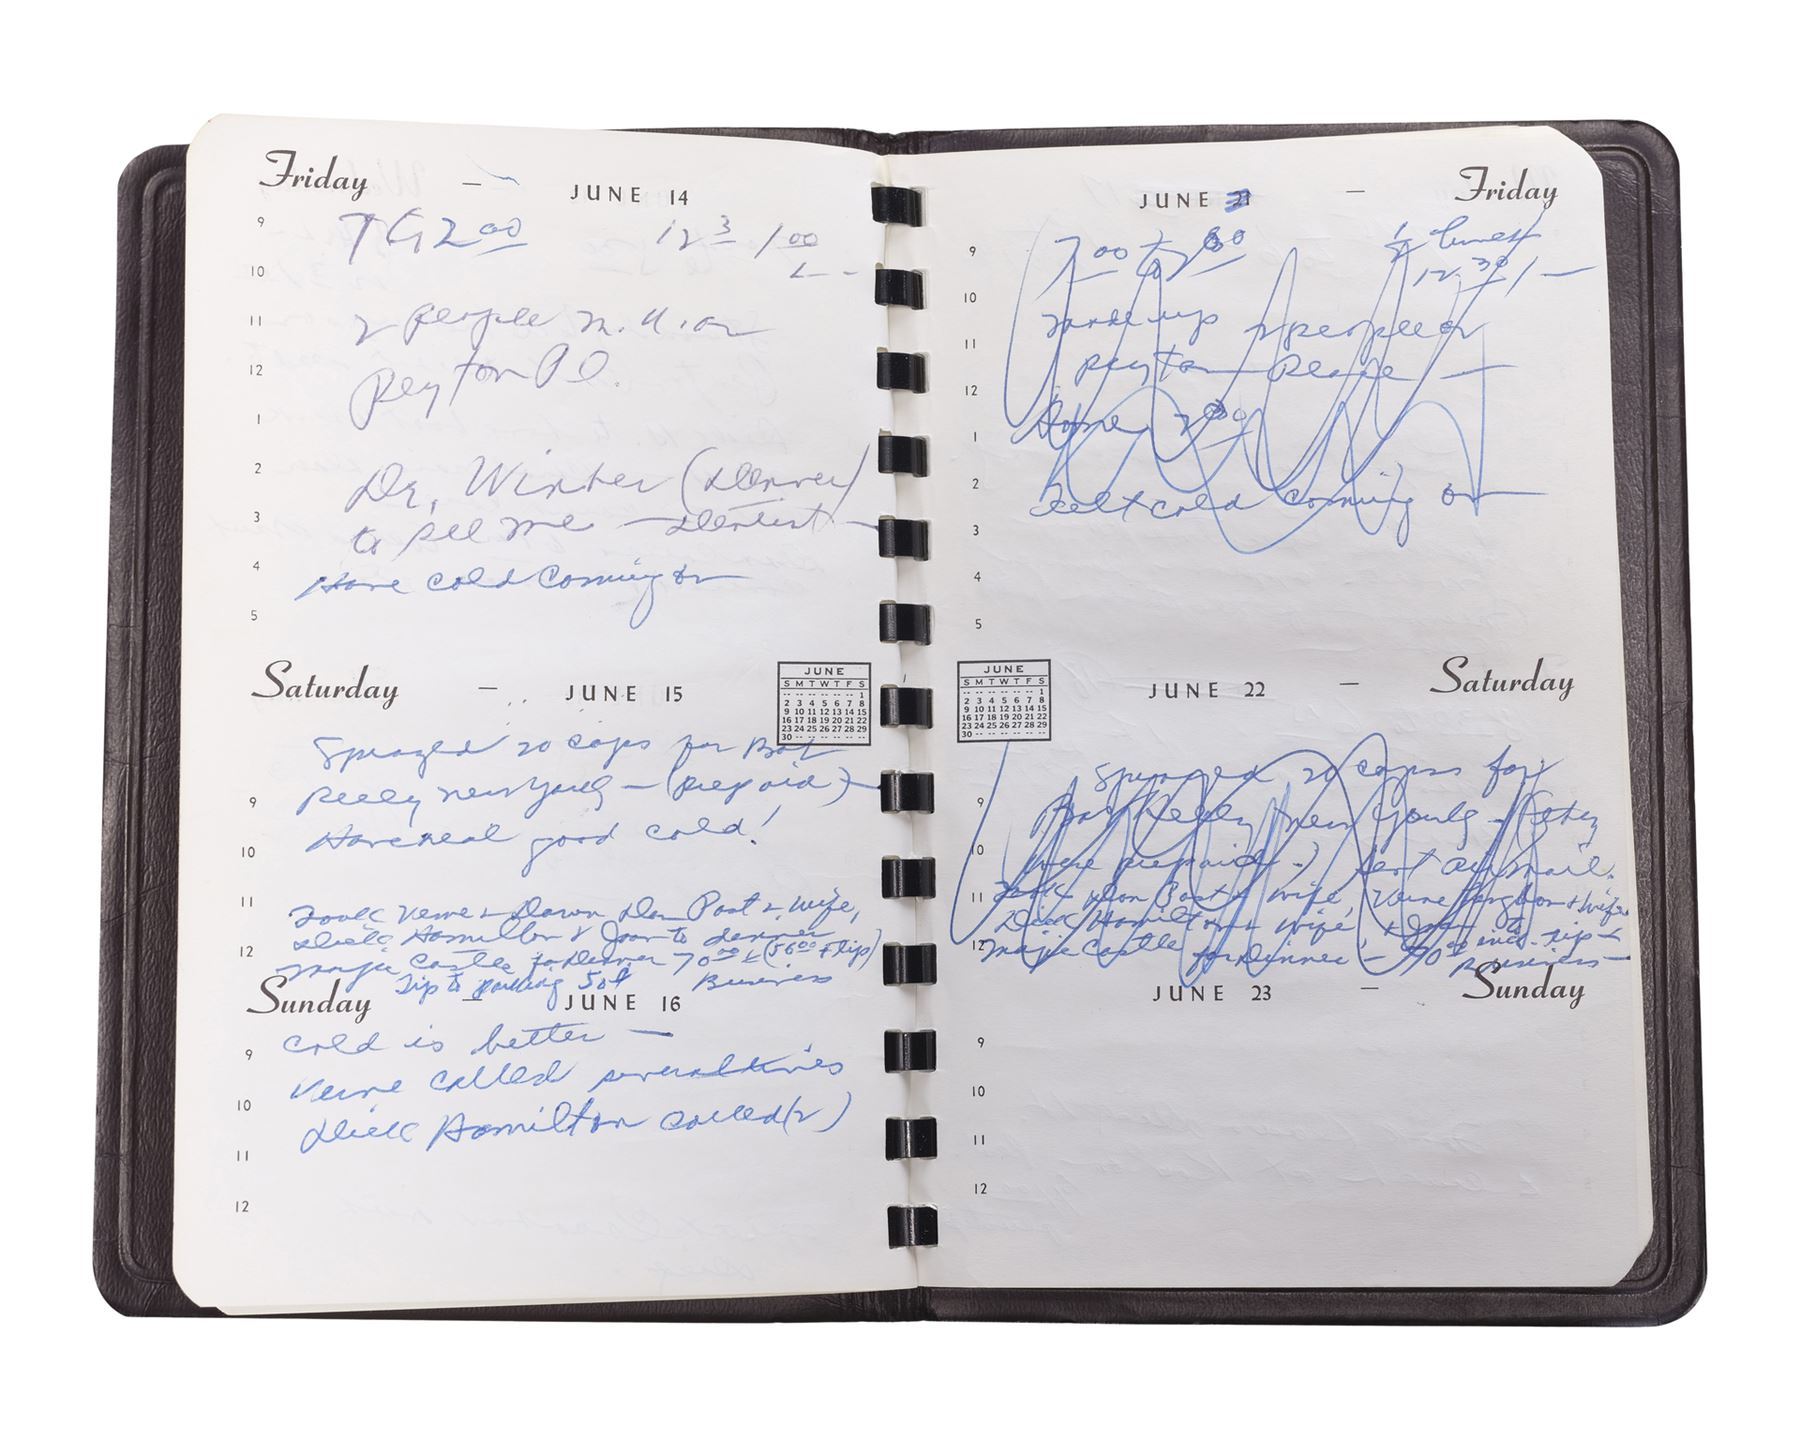 Friday — JUNE 14
9
7 G 2 00 12 3 / 1 00
10
L - -
11
2 people M.U. on
12
Peyton Pl.
1
2
Dr. Winter (Denver)
3
to see me — dentist —
4
Have cold coming on
5
Saturday — JUNE 15
JUNE
S M T W T F S
-- -- -- -- -- -- 1
2 3 4 5 6 7 8
9 10 11 12 13 14 15
16 17 18 19 20 21 22
23 24 25 26 27 28 29
30 -- -- -- -- -- --
Sprayed 20 caps for Bob
9
Kelly New York — (prepaid) —
Have real good cold!
10
11
Took Verne & Dawn, Don Post & wife,
Dick Hamilton & Joan to dinner
12
Magic Castle for Dinner 70 00 (56 00 + tip)
Tip to parking 50¢ Business
Sunday — JUNE 16
Cold is better —
9
Verne called several times
10
Dick Hamilton called (2)
11
12
JUNE 21 — Friday
9
7 00 to 2 30 ½ lunch
12 30 / 1 —
10
Made up 2 people on
11
Peyton Place —
12
Home 2 30
1
2
Felt cold coming on —
3
4
5
JUNE
S M T W T F S
-- -- -- -- -- -- 1
2 3 4 5 6 7 8
9 10 11 12 13 14 15
16 17 18 19 20 21 22
23 24 25 26 27 28 29
30 -- -- -- -- -- --
JUNE 22 — Saturday
Sprayed 20 caps for
9
Bob Kelly New York — (they
10
were prepaid —) Sent Air Mail.
11
Took Don Post & wife, Verne Langdon & wife
Dick Hamilton & wife, & Joan to
12
Magic Castle for Dinner — 70 00 incl. tip —
Business —
JUNE 23 — Sunday
9
10
11
12